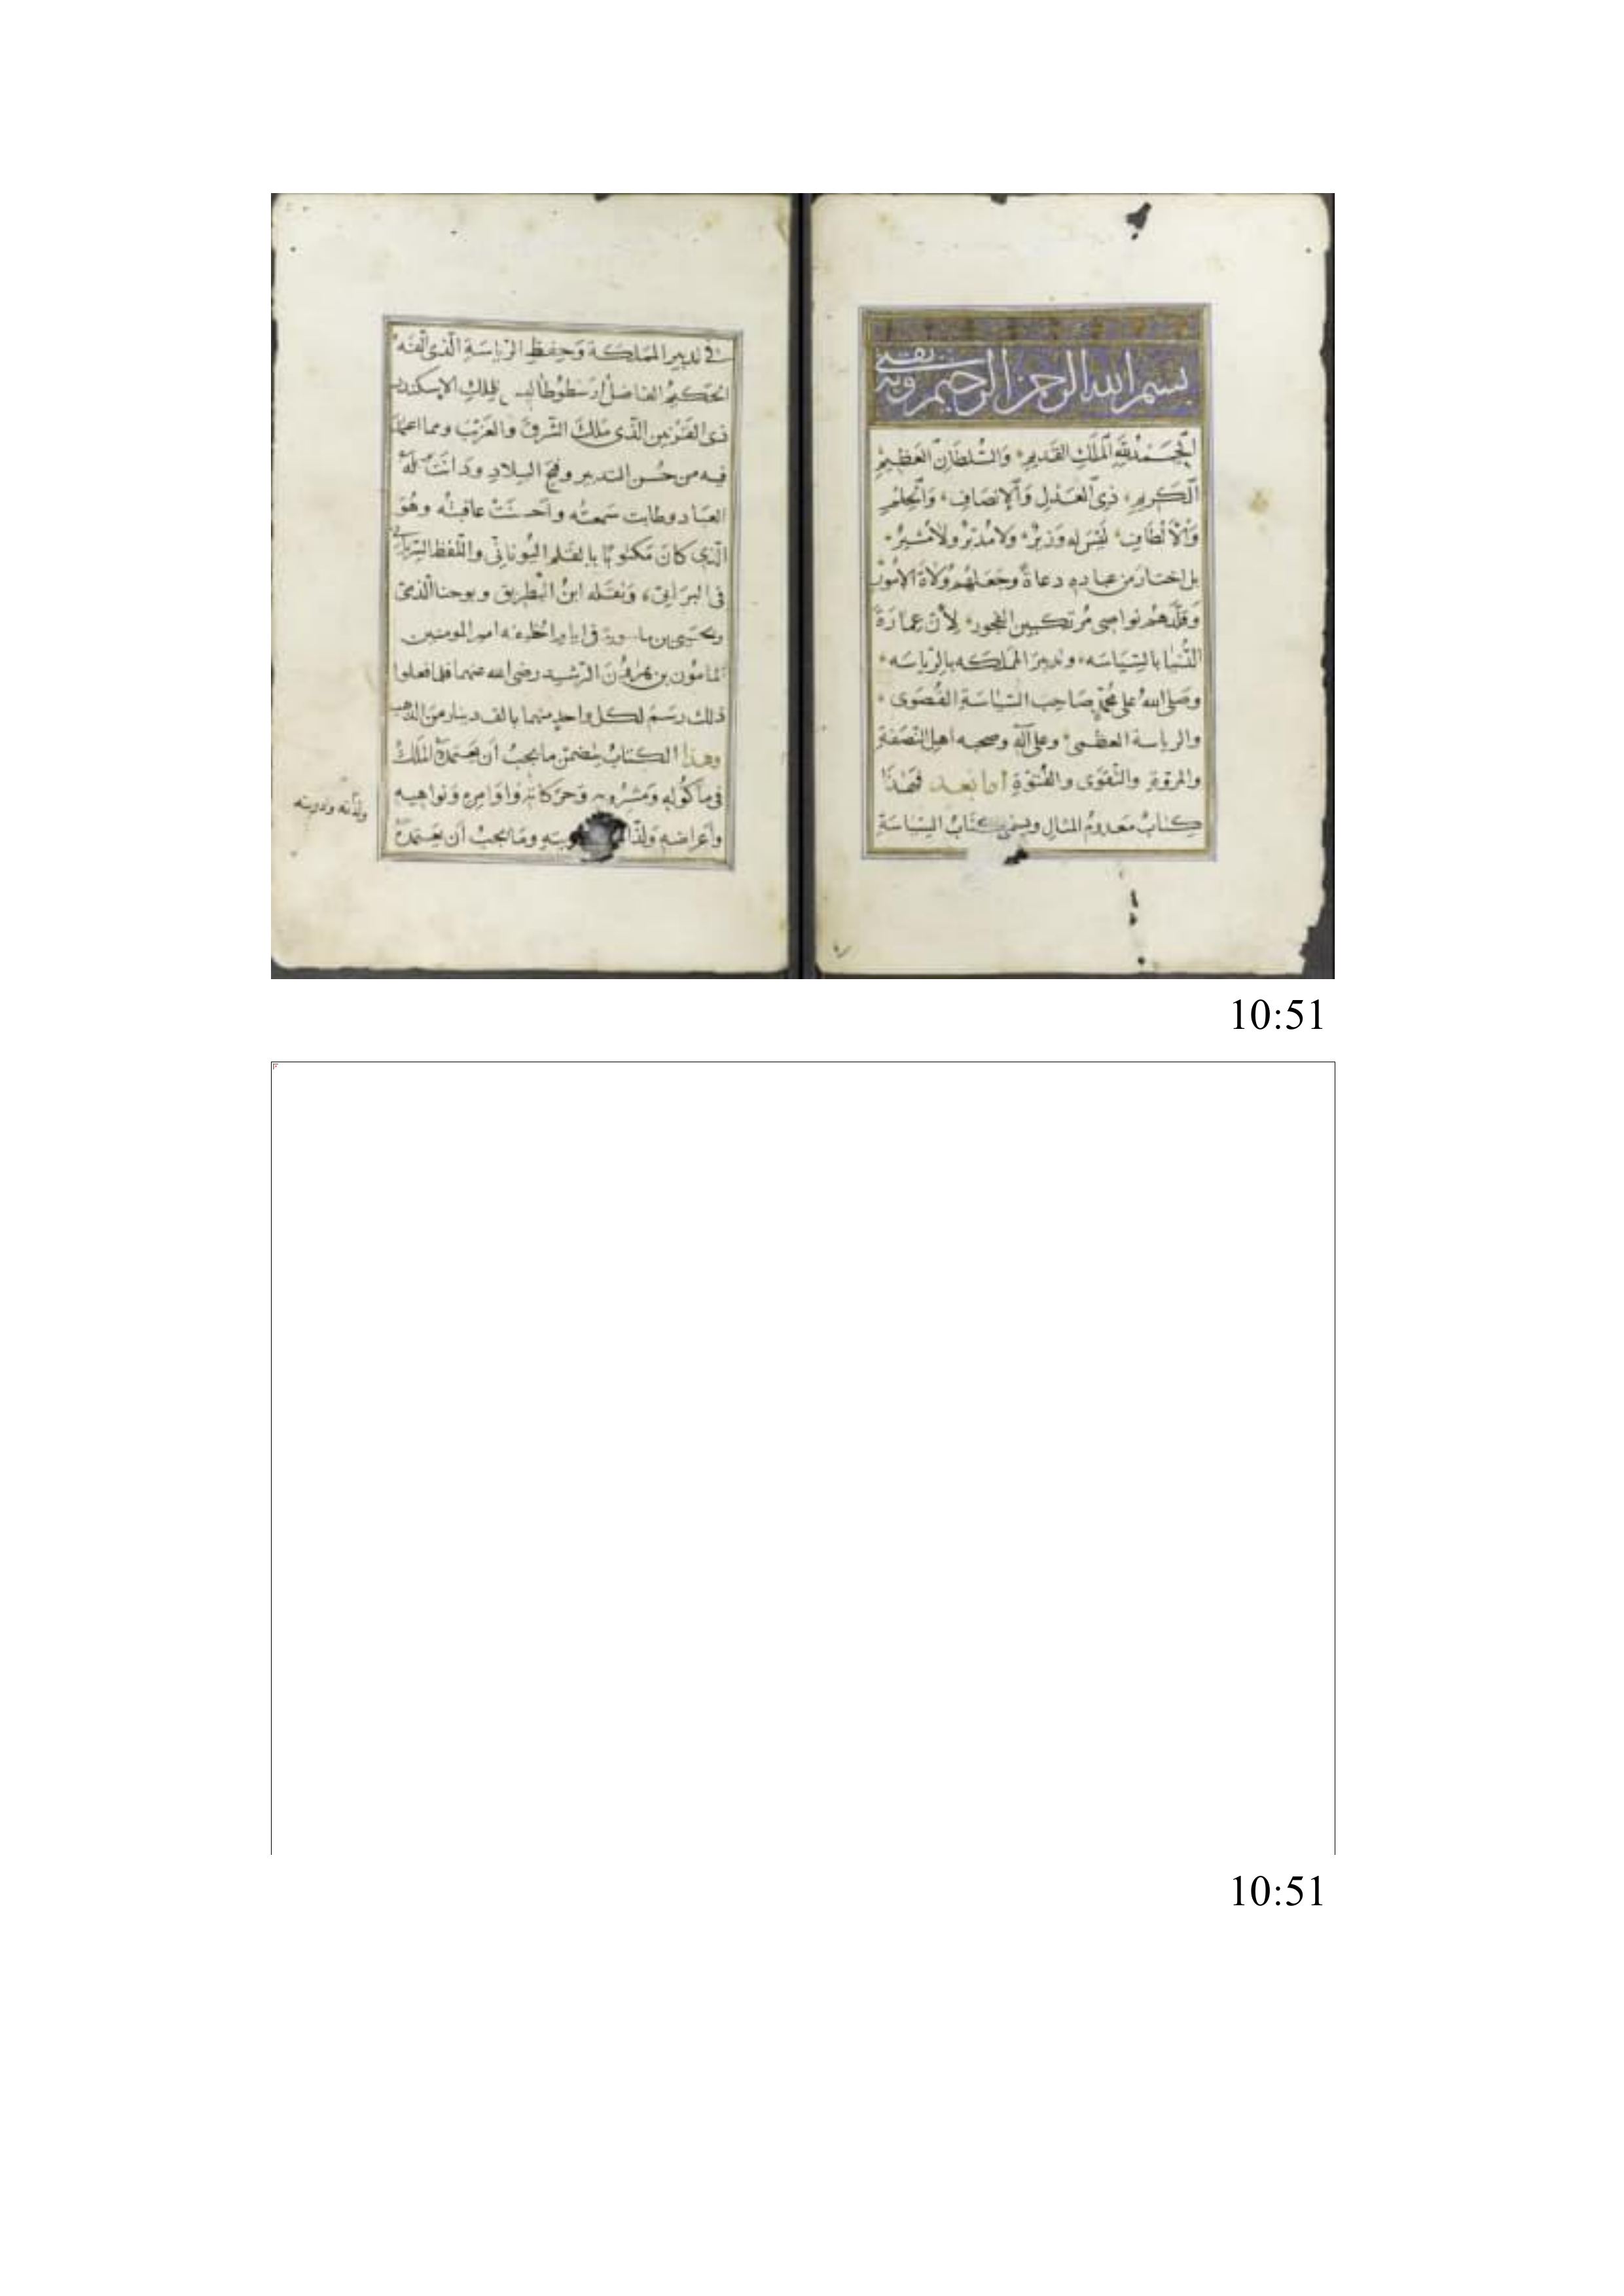 بسم الله الرحمن الرحيم وبه ثقتي
الحمد لله الملك القديم والسلطان العظيم
الكريم ذي العدل والإنصاف والحلم
والألطاف ليس له وزير ولا مدبر ولا مشير
بل اختار من عباده دعاة وجعلهم ولاة الأمور
وقلدهم نواصي مرتكبين الفجور لأن عمارة
الدنيا بالسياسه وتدبير المملكه بالرياسه
وصلى الله على محمد صاحب السياسة القصوى
والرياسة العظمى وعلى آله وصحبه اهل النصفة
والمروة والتقوى والفتوة اما بعد فهذا
كتاب معدوم المثال ويسمى كتاب السياسة
في تدبير المملكة وحفظ الرياسة الذي الفه
الحكيم الفاضل أرسطوطاليس للملك الاسكندر
ذي القرنين الذي ملك الشرق والغرب ومما اعتمد
فيه من حسن التدبير وفتح البلاد ودانت له
العباد وطابت سمعته واحسنت عاقبته وهو
الذي كان مكتوبا بالقلم اليوناني واللفظ السرياني
في البراني ونقله ابن البطريق ويوحنا الذمي
ويحيى بن ماسويه في ايام الخليفه امير المومنين
المامون بن هرون الرشيد رضي الله عنهما فلما فعلوا
ذلك رسم لكل واحد منهما بالف دينار من الذهب
وهذا الكتاب يتضمن ما يجب أن يعتمده الملك
في مأكوله ومشروبه وحركاته واوامره ونواهيه
وأعراضه ولذا وما يجب أن يعتمده
ولذاته ودربته
10:51
10:51